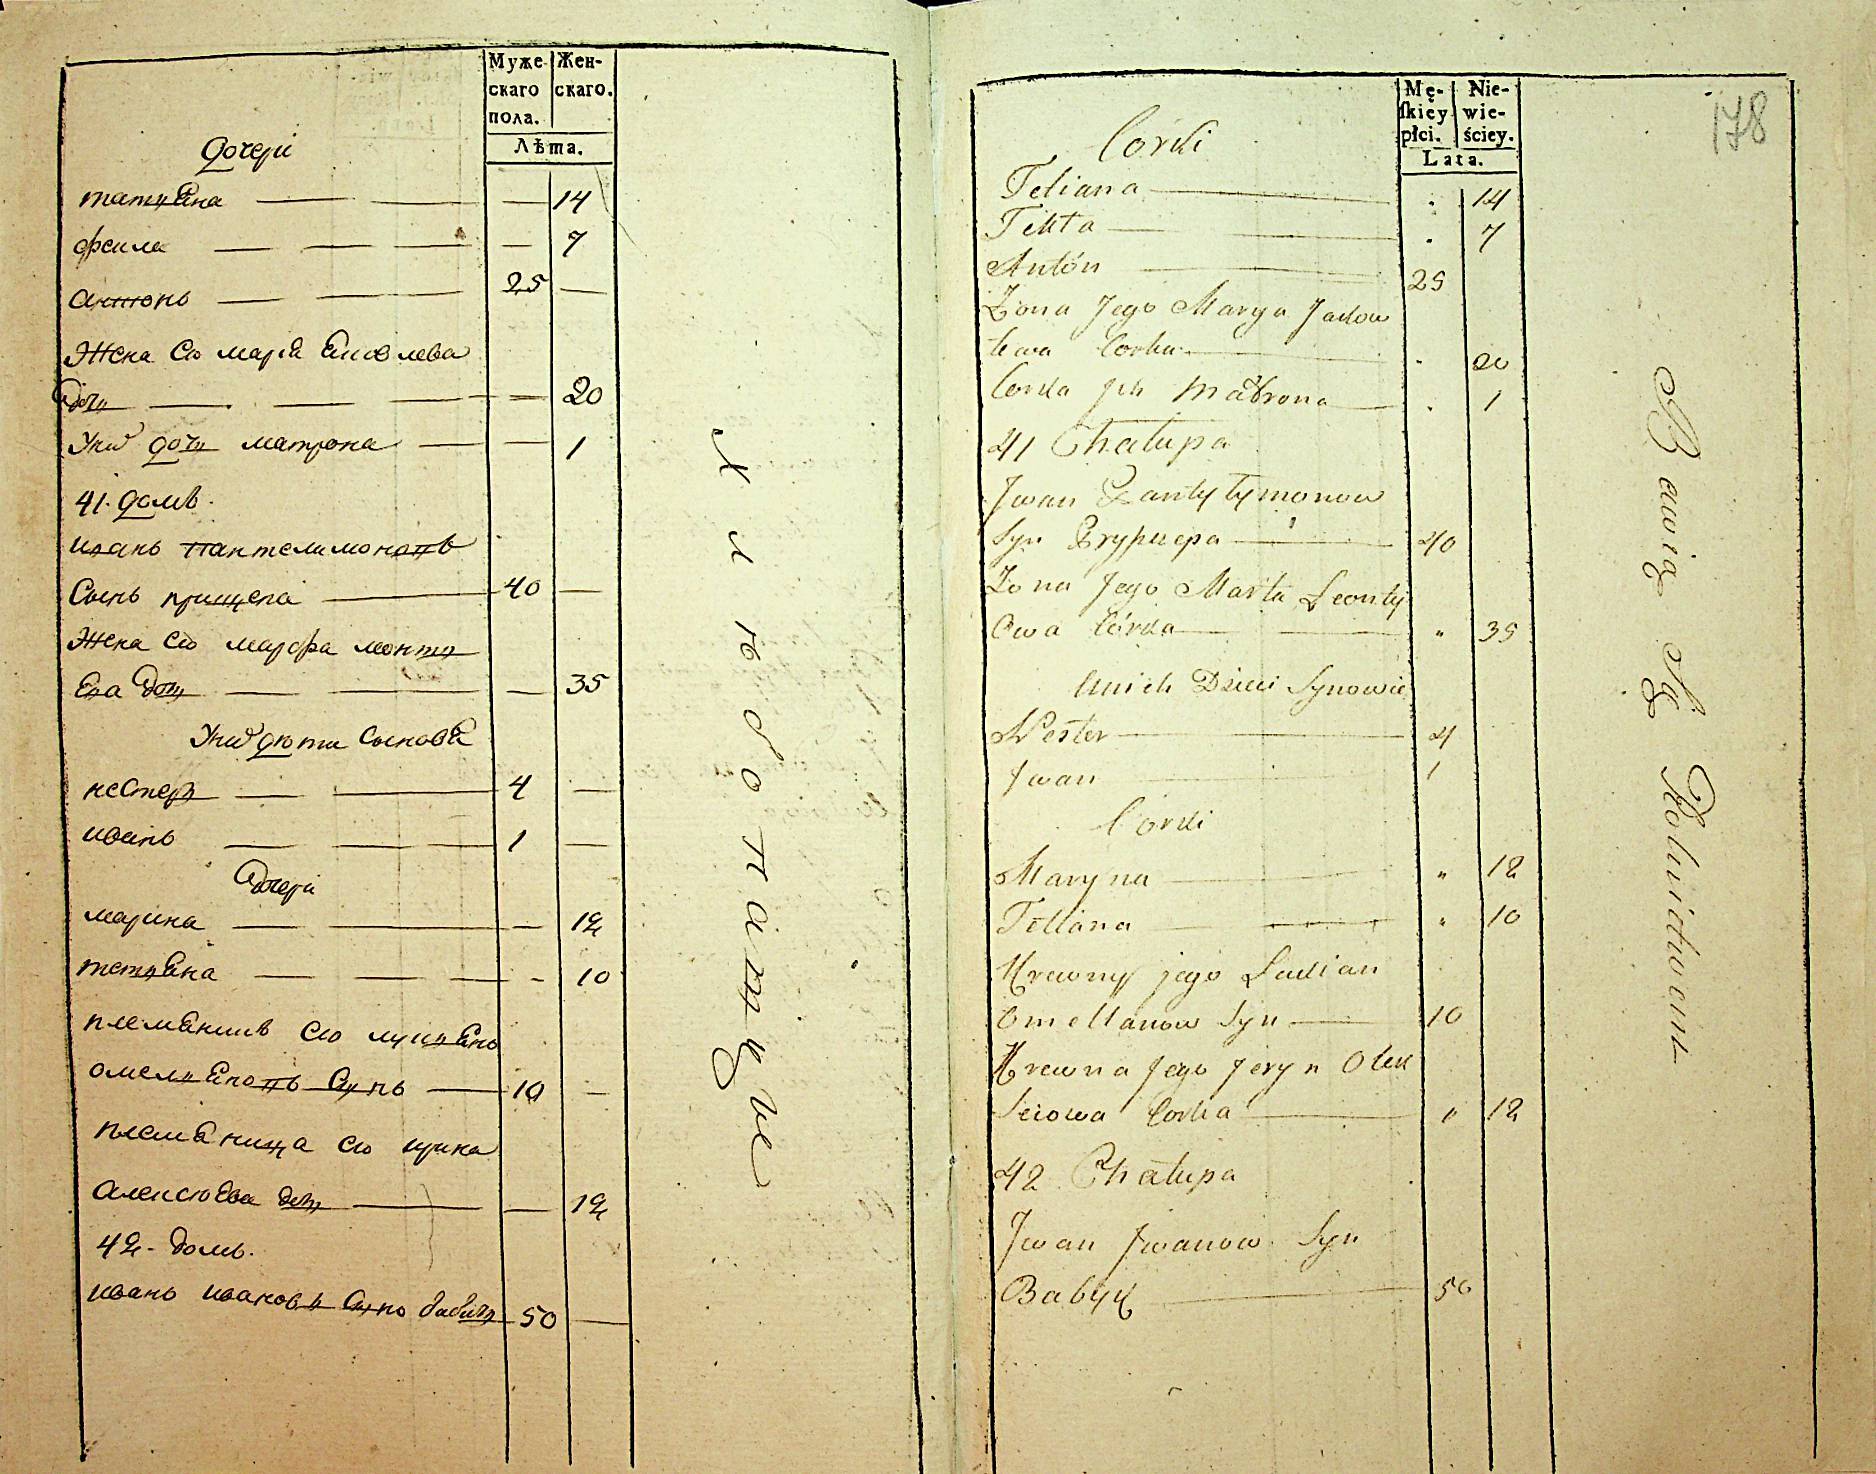 Муже-
скаго
пола.
Жен-
скаго.
Лѣта.
дочери
татияна 14
фекла 7
антонъ 25
Жена его марія яковлева
дочъ 20
Ихъ дочъ матрона 1
41. домъ.
иванъ пантелимоновъ
Сынъ прищепа 40
Жена его марфа леонтъ
ева дочъ 35
Ихъ дѣти Сыновя
нестеръ 4
иванъ 1
дочери
марина 12
татияна 10
племянникъ его лукиянъ
омелияновъ Сынъ 10
племяница его ирина
алексѣева дочъ 12
42. домъ.
иванъ ивановъ Сынъ бабичъ 50
Хлѣбопашцые
178
Mę-
ſkiey
płci.
Nie-
wie-
ściey.
Lata.
Corki
Tetiana 14
Tekla 7
Antón 25
Żona Jego Marya Jakow
lewa Corka 20
Corka ich Matrona 1
41 Chałupa
Jwan Pantyłymonow
Syn Pryszczepa 40
Żona Jego Marta Leontij
Owa Córka 35
U nich Dzieci Synowie
Nester 4
Jwan 1
Corki
Maryna 12
Tetiana 10
Krewny jego Łukian
Omelianow Syn 10
Krewna Jego Jeryn Olek
Seiowa Corka 12
42 Chałupa
Jwan Jwanow Syn
Babycz 50
Bawią Się Rolnictwem